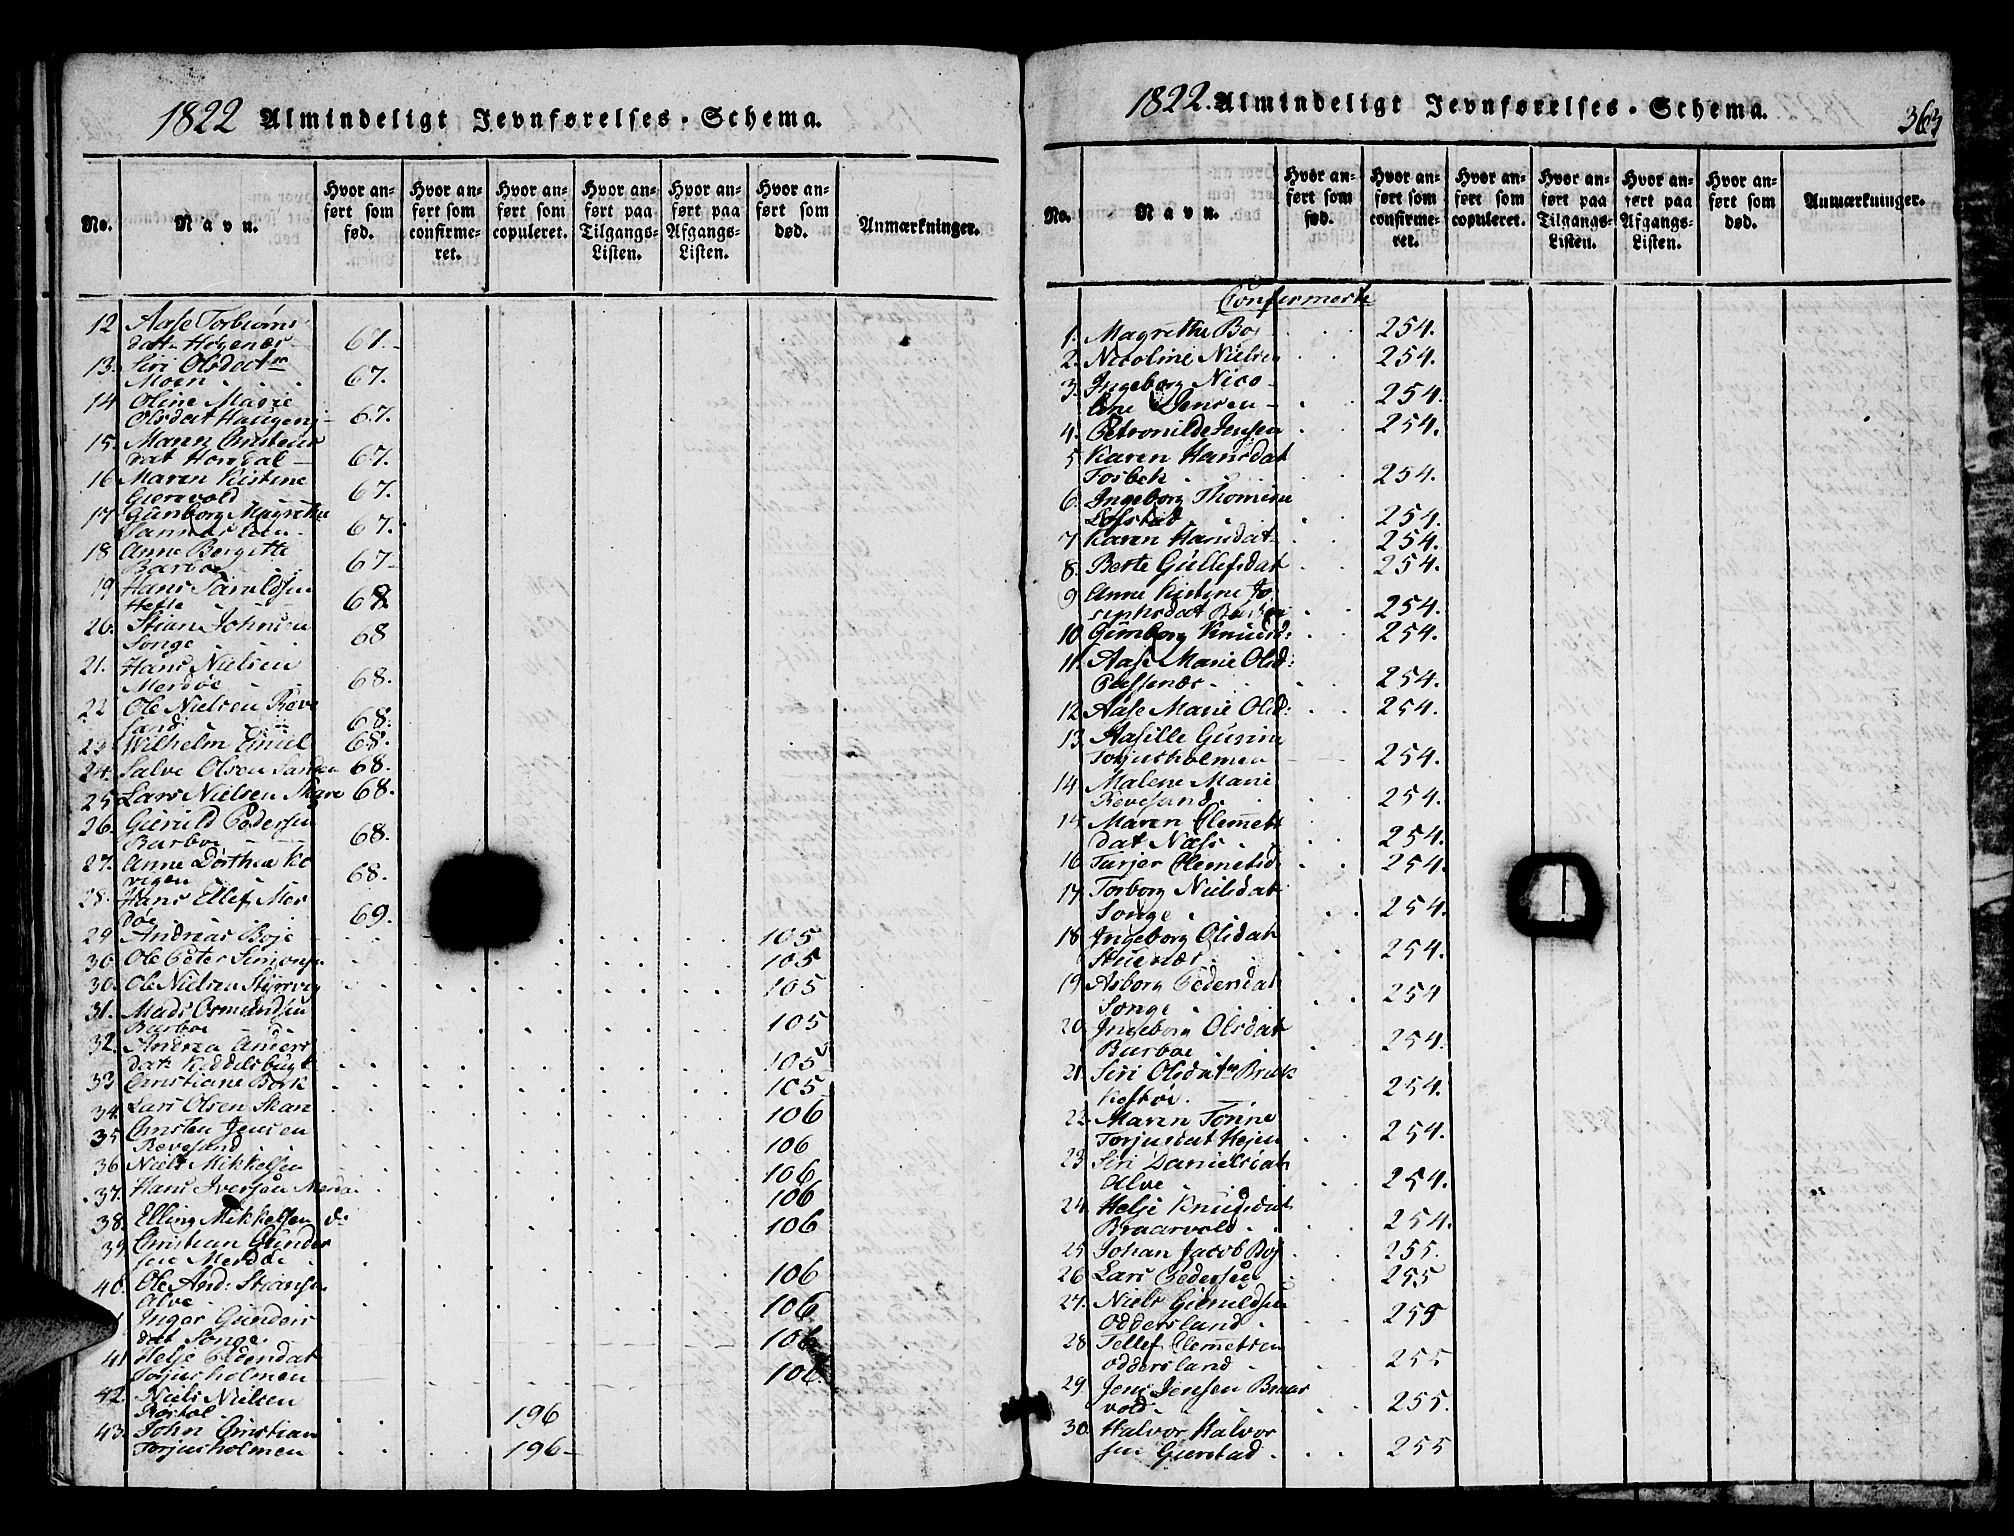 1822 Almindeligt Jevnførelses-Schema.
No.
Navn.
Hvor anført som fød.
Hvor anført som confirmeret.
Hvor anført som copuleret.
Hvor anført paa Tilgangs-Listen.
Hvor anført paa Afgangs-Listen.
Hvor anført som død.
Anmærkninger.
12 Aase Torbiøns
datr Hogenæs 67.
13. Siri Olsdatr
Moen 67.
14 Oline Marie
Olsdat Haugenj 67.
15. Maren Christens
dat Homdal 67.
16 Maren Kistine
Gierevold 67.
17. Gunborg Magrethe
Sannes 67.
18 Anne Bergitte
Barboe 67
19 Hans Taraldsen
Helle 68
20. Stian Johnsen
Songe 68
21. Hans Nielsen
Merdøe 68.
22 Ole Nielsen Reve
sand 68.
23 Wilhelm Emiel 68.
24. Salve Olsen Sandum 68.
25 Lars Nielsen Skare 68.
26. Gieruld Pedersen
Barboe 68.
27. Anne Dorthea Ko
vigen 68.
28. Hans Ellef Mer
døe 69.
29 Andreas Boje 105
30 Ole Peter Simonsen 105
30. Ole Nielsen Styrsvig 105
31. Mads Osmundsen
Barboe 105
32. Andrea Anders
dat Kiddelsbugt 105
33 Christiane Bork 105
34. Lars Olsen Skare 106
35 Christen Jensen
Revesand 106
36 Niels Mikkelsen 106
37. Hans Iversen Merdø 106
38. Elling Mikkelsen do 106
39 Christian Gunder
sen Merdøe 106
40. Ole And: Stiansen
Alve 106
Inger Gunders
dat Songe 106
41 Helje Pedersdat
Torjusholmen 106
42. Niels Nielsen
Rostøl 196
43. John Christian
Torjusholmen 196
1822. Almindeligt Jevnførelses-Schema.
363
No.
Navn.
Hvor anført som fød.
Hvor anført som confirmeret.
Hvor anført som copuleret.
Hvor anført paa Tilgangs-Listen.
Hvor anført paa Afgangs-Listen.
Hvor anført som død.
Anmærkninger.
Confirmerte
1. Magrethe Boe 254.
2. Nicoline Nielsen 254.
3. Ingeborg Nico-
line Jensen 254.
4. Petronilde Jensen 254.
5 Karen Hansdat
Torbek 254.
6. Ingeborg Thomine
Løfstad 254.
7 Karen Hansdat 254.
8. Berte Gullefsdat 254.
9 Anne Kistine Jo
sephsdat Barboe 254.
10 Gunborg Knudsd: 254.
11. Aase Marie Olsd:
254.
12. Aase Marie Olsd: 254.
13. Aasille Gurine
Torjusholmen 254.
14 Malene Marie
Revesand 254.
15 Maren Clemets
dat Næss 254.
16 Turjer Clemetsd. 254.
17. Torborg Nielsdat
Songe 254.
18 Ingeborg Olsdat
254.
19 Asborg Pedersdat
Songe 254
20. Ingeborg Olsdat
Barboe 254.
21. Siri Olsdatr Brekk
254.
22. Maren Tonne
Torjusdat Hejen 254.
23 Siri Danielsdat
Alve 254.
24. Helje Knudsdat
Braarvold 254.
25. Johan Jacob Boj 255.
26 Lars Pedersen 255
27. Niels Gieruldsen
Oddersland 255
28 Tellef Clemetsen
Oddersland 255
29. Jens Jensen Braar
vold 255.
30. Halvor Halvor
sen Gierstad 255